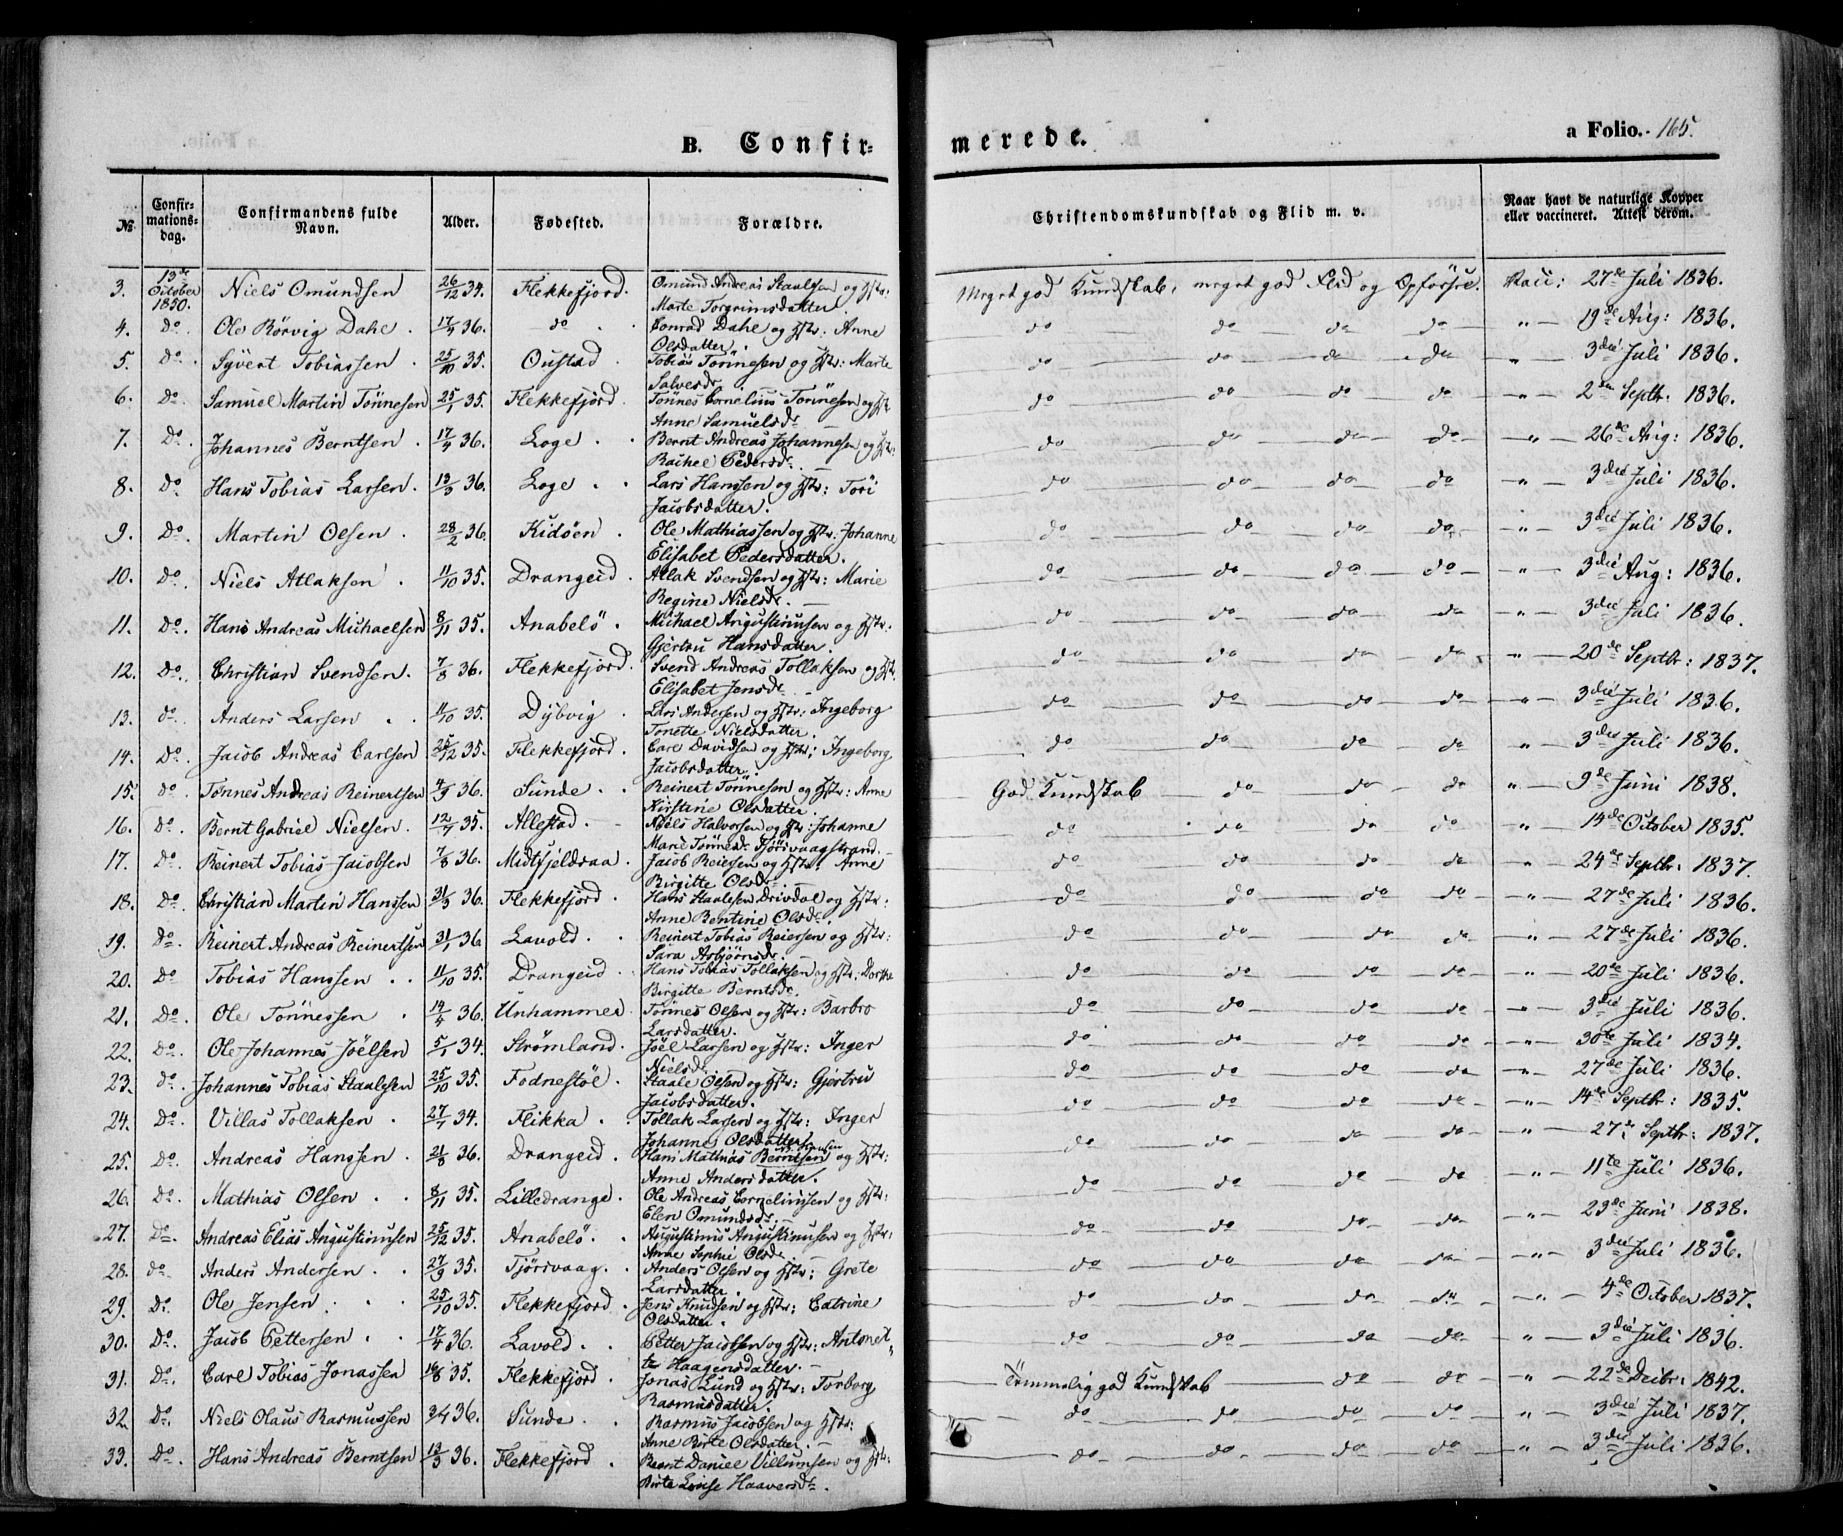 B. Confir-
№
Confir-
mations-
dag.
Confirmandens fulde
Navn.
Alder.
Fødested.
Forældre.
merede.
a Folio. 165.
Christendomskundskab og Flid m. v.
Naar havt de naturlige Kopper
eller vaccineret. Attest derom.
3. 13de October 1850. Niels Omundsen 26/12 34. Flekkefjord. Omund Andreas Staalesen og Hstr:
Marte Torgrimsdatter.
Meget god Kundskab, meget god Flid og Opførsel. Vacc: 27de Juli 1836.
4. Do Ole Rörvig Dahl. 17/4 36. do Conrad Dahl og Hstr: Anne
Olsdatter.
do do do do " 19de Aug: 1836.
5. Do Syvert Tobiassen. 25/10 35. Oustad Tobias Tönnesen og Hstr: Marte
Salvesdr.
do do do do " 3die Juli 1836.
6. Do Samuel Martin Tönnesen 25/1 35. Flekkefjord. Tönnes Cornelius Tönnesen og Hstr
Anne Samuelsdr
do do do do " 2den Septbr: 1836.
7. Do Johannes Berntsen 17/4 36. Loge. Bernt Andreas Johannesen og Hstr:
Rachel Pedersdr.
do do do do " 26de Aug: 1836.
8. Do Hans Tobias Larsen. 13/3 36. Loge Lars Hanssen og Hstr: Tori
Jacobsdatter.
do do do do " 3die Juli 1836.
9. Do Martin Olsen. 28/2 36. Kidöen Ole Mathiassen og Hstr: Johanne
Elisabet Pedersdatter.
do do do do " 3die Juli 1836.
10. Do Niels Atlaksen 11/10 35. Drangeid. Atlak Svendsen og Hstr: Marie
Regine Nielsdr.
do do do do " 3die Aug: 1836.
11. Do Hans Andreas Michaelsen 8/11 35. Anabelö. Michael Augustinusen og Hstr.
Gjertru Hansdatter.
do do do do " 3die Juli 1836.
12. Do Christian Svendsen. 7/8 36. Flekkefjord. Svend Andreas Tollaksen og Hstr.
Elisabet Jensdr.
do do do do " 20de Septbr: 1837.
13. do Anders Larsen 11/10 35. Dybvig. Lars Andersen og Hstr: Ingeborg
Tonette Nielsdatter.
do do do do " 3die Juli 1836.
14. Do Jacob Andreas Carlsen 25/12 35. Flekkefjord. Carl Davidsen og Hstr: Ingeborg
Jacobsdatter.
do do do do " 3die Juli 1836.
15. do Tönnes Andreas Reinertsen 4/3 36. Sunde. Reinert Tönnesen og Hstr: Anne
Kirstine Olsdatter.
God Kundskab do do do " 9de Juni 1838.
16. Do Bernt Gabriel Nielsen. 12/7 35. Allestad. Niels Halvorsen og Hstr: Johanne
Marie Tönnesdr. Tjörsvaagstrand.
do do do do " 14de October 1835.
17. Do Reinert Tobias Jacobsen 7/8 36. Midtfjeldraa. Jacob Reiersen og Hstr. Anne
Birgitte Olsdr.
do do do do " 24de Septbr: 1837.
18. Do Christian Martin Hanssen 31/3 36. Flekkefjord. Hans Staalesen Drivdal og Hstr:
Anne Bentine Olsdr.
do do do do " 27de Juli 1836.
19. Do Reinert Andreas Reinertsen 31/1 36 Lavold. Reinert Tobias Reiersen og Hstr:
Sara Asbjörnsdr.
do do do do " 27de Juli 1836.
20. Do Tobias Hanssen 11/10 35. Drangeid. Hans Tobias Tollaksen og Hstr: Dorthe
Birgitte Berntsdr.
do do do do " 20de Juli 1836.
21. Do Ole Tönnessen 14/4 36. Unhammer. Tönnes Olsen og Hstr: Barbro
Larsdatter.
do do do do " 3die Juli 1836.
22. Do Ole Johannes Jöelsen 5/1 34. Strømland. Jöel Larsen og Hstr: Inger
Nielsdr.
do do do do " 30de Juli 1834.
23. Do Johannes Tobias Staalesen 25/10 35. Fodnestöl. Staale Olsen og Hstr: Gjertru
Jacobsdatter.
do do do do " 27de Juli 1836.
24. Do Villas Tollaksen 27/7 34. Flikka. Tollak Larsen og Hstr: Inger
Johannes Olsdatter
do do do do " 14de Septbr: 1835.
25. Do Andreas Hanssen 21/8 36. Drangeid. Hans Mathias Berntsen og Hstr:
Anne Andersdatter.
do do do do " 27de Septbr: 1837.
26. Do Mathias Olsen 8/11 35. Lilledrange. Ole Andreas Corneliussen og Hstr:
Elen Omundsdr.
do do do do " 11te Juli 1836.
27. Do Andreas Elias Augustinusen 25/12 35. Anabelö. Augustinus Augustinusen og Hstr:
Anne Sophie Olsdr.
do do do do " 23de Juni 1838.
28. do Anders Andersen 27/9 35. Tjörsvaag. Anders Olsen og Hstr: Grete
Larsdatter.
do do do do " 3die Juli 1836.
29. Do Ole Jensen. 25/10 35. Flekkefjord. Jens Knudsen og Hstr: Catrine
Olsdatter.
do do do do " 4de October 1837.
30. Do Jacob Pettersen 17/4 36. Lavold. Petter Jacobsen og Hstr: Antonet-
te Haagensdatter.
do do do do " 3die Juli 1836.
31. Do Carl Tobias Jonassen 16/8 35. Flekkefjord. Jonas Lund og Hstr: Torborg
Rasmusdatter.
Temmelig god Kundskab do do " 22de Decbr: 1842.
32. Do Niels Olaus Rasmussen 3/4 36. Sunde. Rasmus Jacobsen og Hstr:
Anne Birte Olsdatter.
do do do do " 3die Juli 1837.
33. Do Hans Andreas Berntsen 13/3 36. Flekkefjord. Bernt Daniel Villumsen og Hstr:
Birte Lovise Haaversdr.
do do do do " 3die Juli 1836.